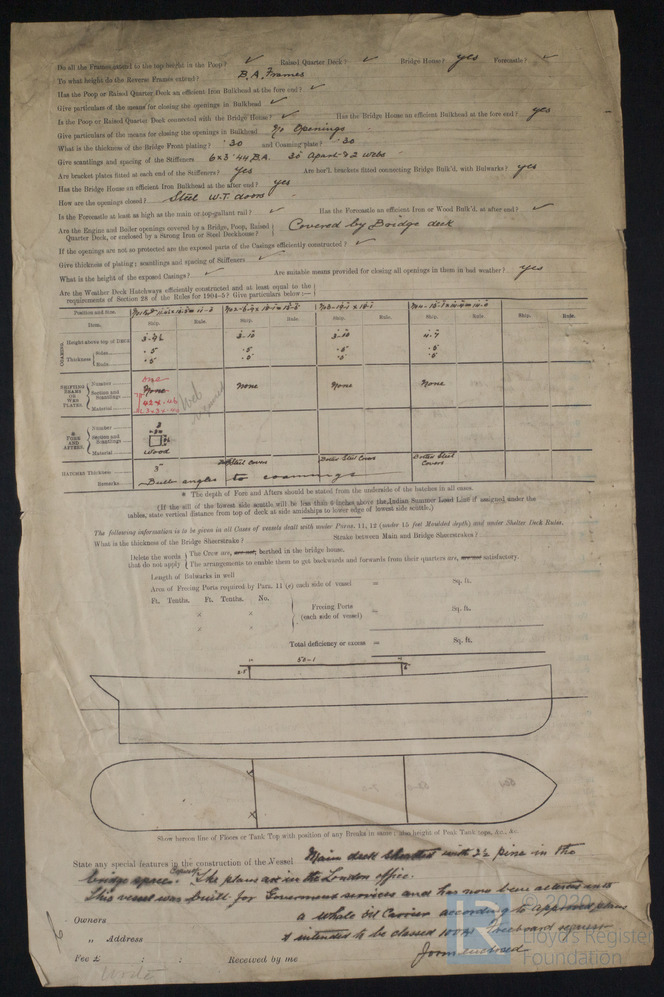 Do all the Frames extend to the top height in the Poop? ✓ Raised Quarter Deck? ✓ Bridge House? yes Forecastle? ✓
To what height do the Reverse Frames extend? B.A. Frames
Has the Poop or Raised Quarter Deck an efficient Iron Bulkhead at the fore end? ✓
Give particulars of the means for closing the openings in Bulkhead ✓
Is the Poop or Raised Quarter Deck connected with the Bridge House? ✓ Has the Bridge House an efficient Bulkhead at the fore end? yes
Give particulars of the means for closing the openings in Bulkhead No Openings
What is the thickness of the Bridge Front plating? ·30 and Coaming plate? ·30
Give scantlings and spacing of the Stiffeners 6x3 ·44 B.A. 30 apart & 2 webs
Are bracket plates fitted at each end of the Stiffeners? yes Are hor'l. brackets fitted connecting Bridge Bulk'd, with Bulwarks? yes
Has the Bridge House an efficient Iron Bulkhead at the after end? yes
How are the openings closed? Steel W.T. doors
Is the Forecastle at least as high as the main or top-gallant rail? ✓ Has the Forecastle an efficient Iron or Wood Bulk'd. at after end? ✓
Are the Engine and Boiler openings covered by a Bridge, Poop, Raised
Quarter Deck, or enclosed by a Strong Iron or Steel Deckhouse? Covered by Bridge deck
If the openings are not so protected are the exposed parts of the Casings efficiently constructed? ✓
Give thickness of plating; scantlings and spacing of Stiffeners ✓
What is the height of the exposed Casings? ✓ Are suitable means provided for closing all openings in them in bad weather? yes
Are the Weather Deck Hatchways efficiently constructed and at least equal to the
requirements of Section 28 of the Rules for 1904-5? Give particulars below:—
Position and Size.
Item. Ship. Rule. Ship. Rule. Ship. Rule. Ship. Rule. Ship. Rule.
COAMING
Height above top of Deck
Thickness Sides ·5 ·5 ·5 ·5
Ends ·5 ·5 ·5 ·5
SHIFTING BEAMS OR WEB PLATES
Number one
None None None None
Section and Scantlings
Material
web
* FORE AND AFTERS.
Number
Section and Scantlings
Material wood
HATCHES Thickness 3" Steel Covers Steel Covers Steel Covers
Remarks Bulb angles to coamings
* The depth of Fore and Afters should be stated from the underside of the hatches in all cases.
(If the sill of the lowest side scuttle will be less than 6 inches above the Indian Summer Load Line if assigned under the
tables, state vertical distance from top of deck at side amidships to lower edge of lowest side scuttle.)
The following information is to be given in all Cases of vessels dealt with under Paras. 11, 12 (under 15 feet Moulded depth) and under Shelter Deck Rules.
What is the thickness of the Bridge Sheerstrake? Strake between Main and Bridge Sheerstrakes?
Delete the words The Crew are, are not, berthed in the bridge house.
that do not apply The arrangements to enable them to get backwards and forwards from their quarters are, are not satisfactory.
Length of Bulwarks in well
Area of Freeing Ports required by Para. 11 (e) each side of vessel = Sq. ft.
Ft. Tenths. Ft. Tenths. No.
× Freeing Ports
(each side of vessel) = Sq. ft.
×
Total deficiency or excess = Sq. ft.
50-1
Show hereon line of Floors or Tank Top with position of any Breaks in same; also height of Peak Tank tops, &c., &c.
State any special features in the construction of the Vessel Main deck sheathed with 2½ pine in the
bridge space. The plans are in the London office.
This vessel was built for Government services and has now been altered into
a whale oil Carrier according to approved plans
Owners
& intended to be classed 100A1 Freeboard request
„ Address
Fee £ : : Received by me
© 2020
Lloyd's Register
Foundation
LR